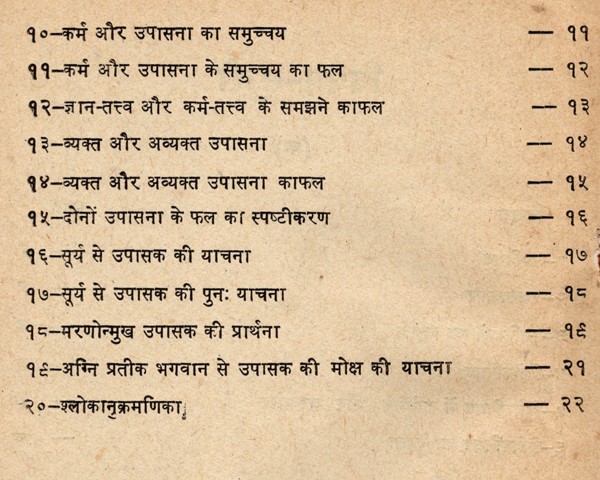 १०–कर्म और उपासना का समुच्चय — ११
११–कर्म और उपासना के समुच्चय का फल — १२
१२–ज्ञान-तत्त्व और कर्म-तत्त्व के समझने काफल — १३
१३–व्यक्त और अव्यक्त उपासना — १४
१४–व्यक्त और अव्यक्त उपासना काफल — १५
१५–दोनों उपासना के फल का स्पष्टीकरण — १६
१६–सूर्य से उपासक की याचना — १७
१७–सूर्य से उपासक की पुनः याचना — १८
१८–मरणोन्मुख उपासक की प्रार्थना — १९
१९–अग्नि प्रतीक भगवान से उपासक की मोक्ष की याचना — २१
२०–श्लोकानुक्रमणिका — २२